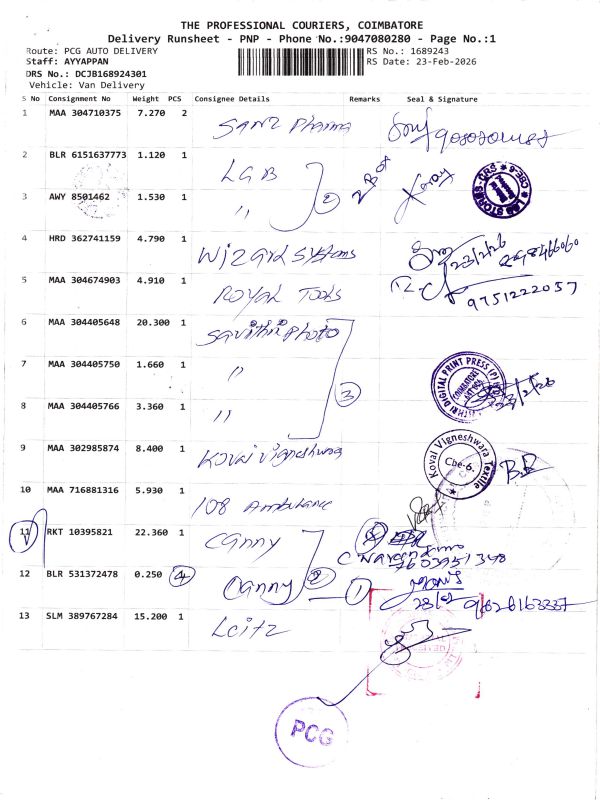 THE PROFESSIONAL COURIERS, COIMBATORE
Delivery Runsheet - PNP - Phone No.:9047080280 - Page No.:1
Route: PCG AUTO DELIVERY RS No.: 1689243
Staff: AYYAPPAN RS Date: 23-Feb-2026
DRS No.: DCJB168924301
Vehicle: Van Delivery
S No Consignment No Weight PCS Consignee Details Remarks Seal & Signature
1 MAA 304710375 7.270 2 Sanz Pharma
2 BLR 6151637773 1.120 1 LGB 2 Box
3 AWY 8501462 1.530 1 〃 2
LGB STORES-QRS CBE-6
4 HRD 362741159 4.790 1 Wizard Systems 23/2/26
5 MAA 304674903 4.910 1 Royal Tools 9751222057
6 MAA 304405648 20.300 1 Savithri Photo
7 MAA 304405750 1.660 1 〃
8 MAA 304405766 3.360 1 〃 3
DIGITAL PRINT PRESS (P)
9 MAA 302985874 8.400 1 Kovai Vigneshwara
Kovai Vigneshwara Textile Cbe-6.
10 MAA 716881316 5.930 1 108 Ambulance
11 RKT 10395821 22.360 1 Canny
12 BLR 531372478 0.250 4 Canny 2 1
13 SLM 389767284 15.200 1
PCG